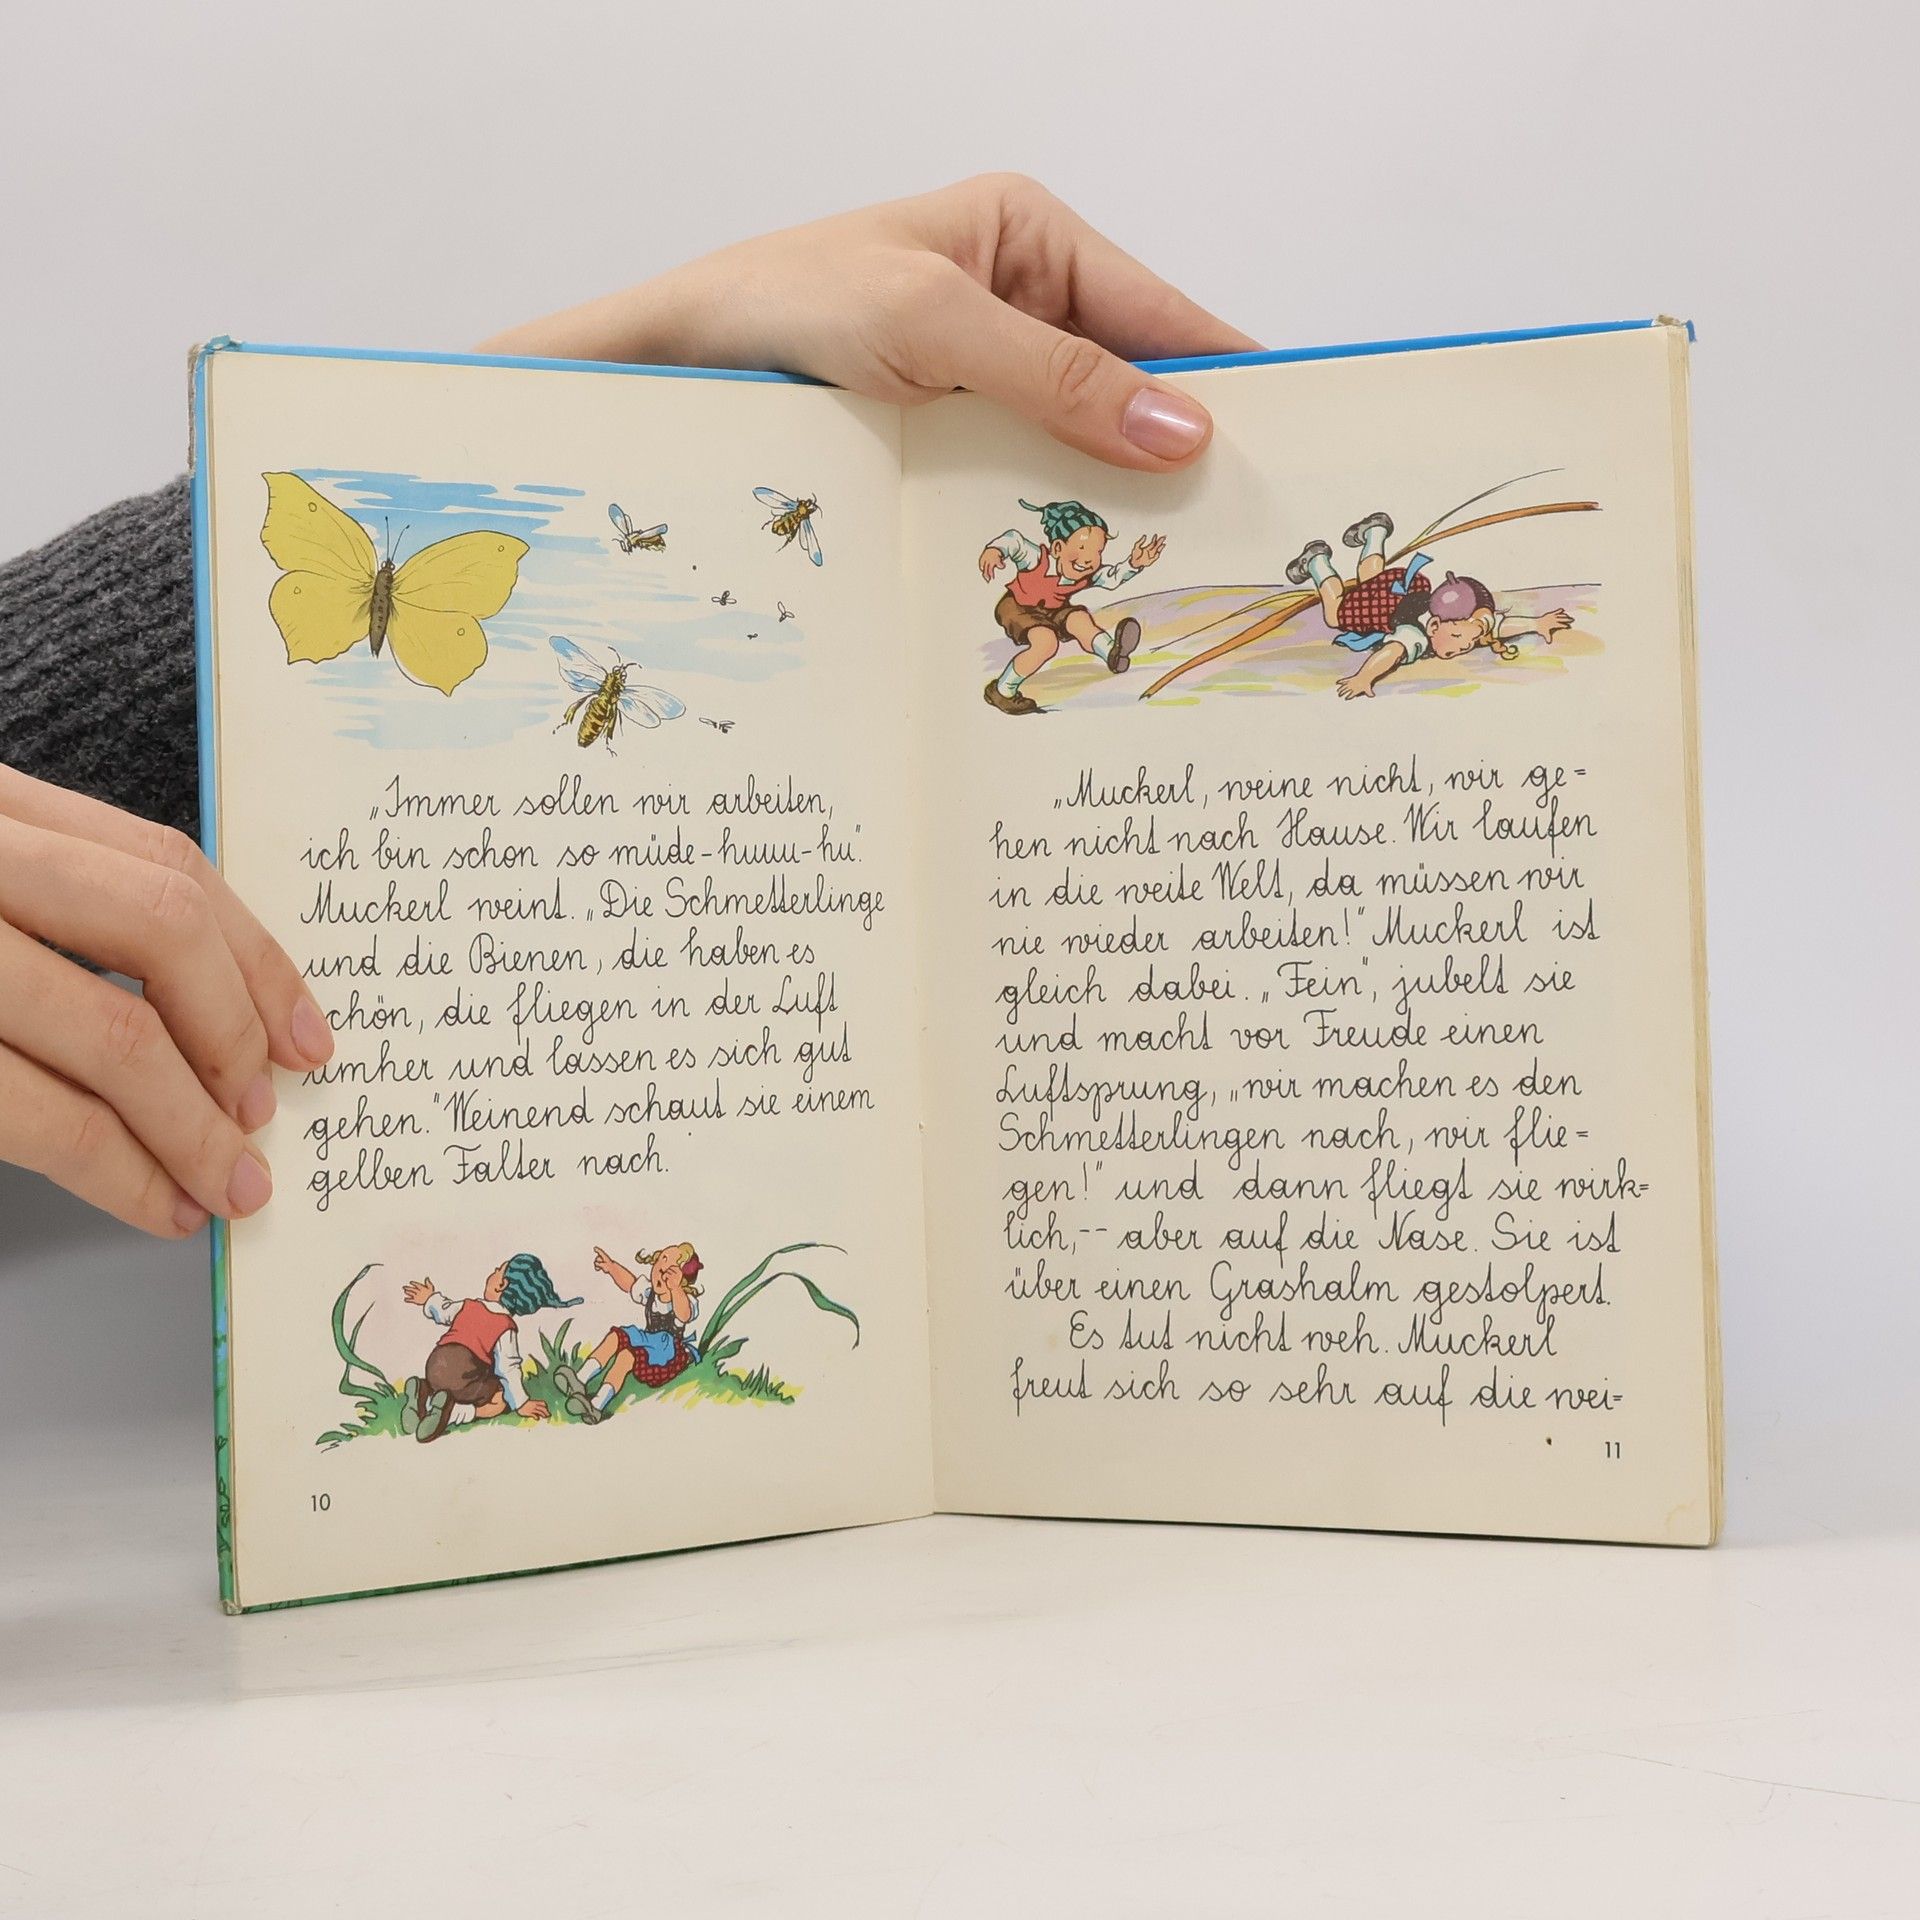 „Immer sollen wir arbeiten,
ich bin schon so müde-huuu-hu".
Muckerl weint. „Die Schmetterlinge
und die Bienen, die haben es
schön, die fliegen in der Luft
umher und lassen es sich gut
gehen." Weinend schaut sie einem
gelben Falter nach.
10
„Muckerl, weine nicht, wir ge=
hen nicht nach Hause. Wir laufen
in die weite Welt, da müssen wir
nie wieder arbeiten!" Muckerl ist
gleich dabei. „Fein", jubelt sie
und macht vor Freude einen
Luftsprung, „wir machen es den
Schmetterlingen nach, wir flie=
gen!" und dann fliegt sie wirk=
lich,-- aber auf die Nase. Sie ist
über einen Grashalm gestolpert.
Es tut nicht weh. Muckerl
freut sich so sehr auf die wei=
11